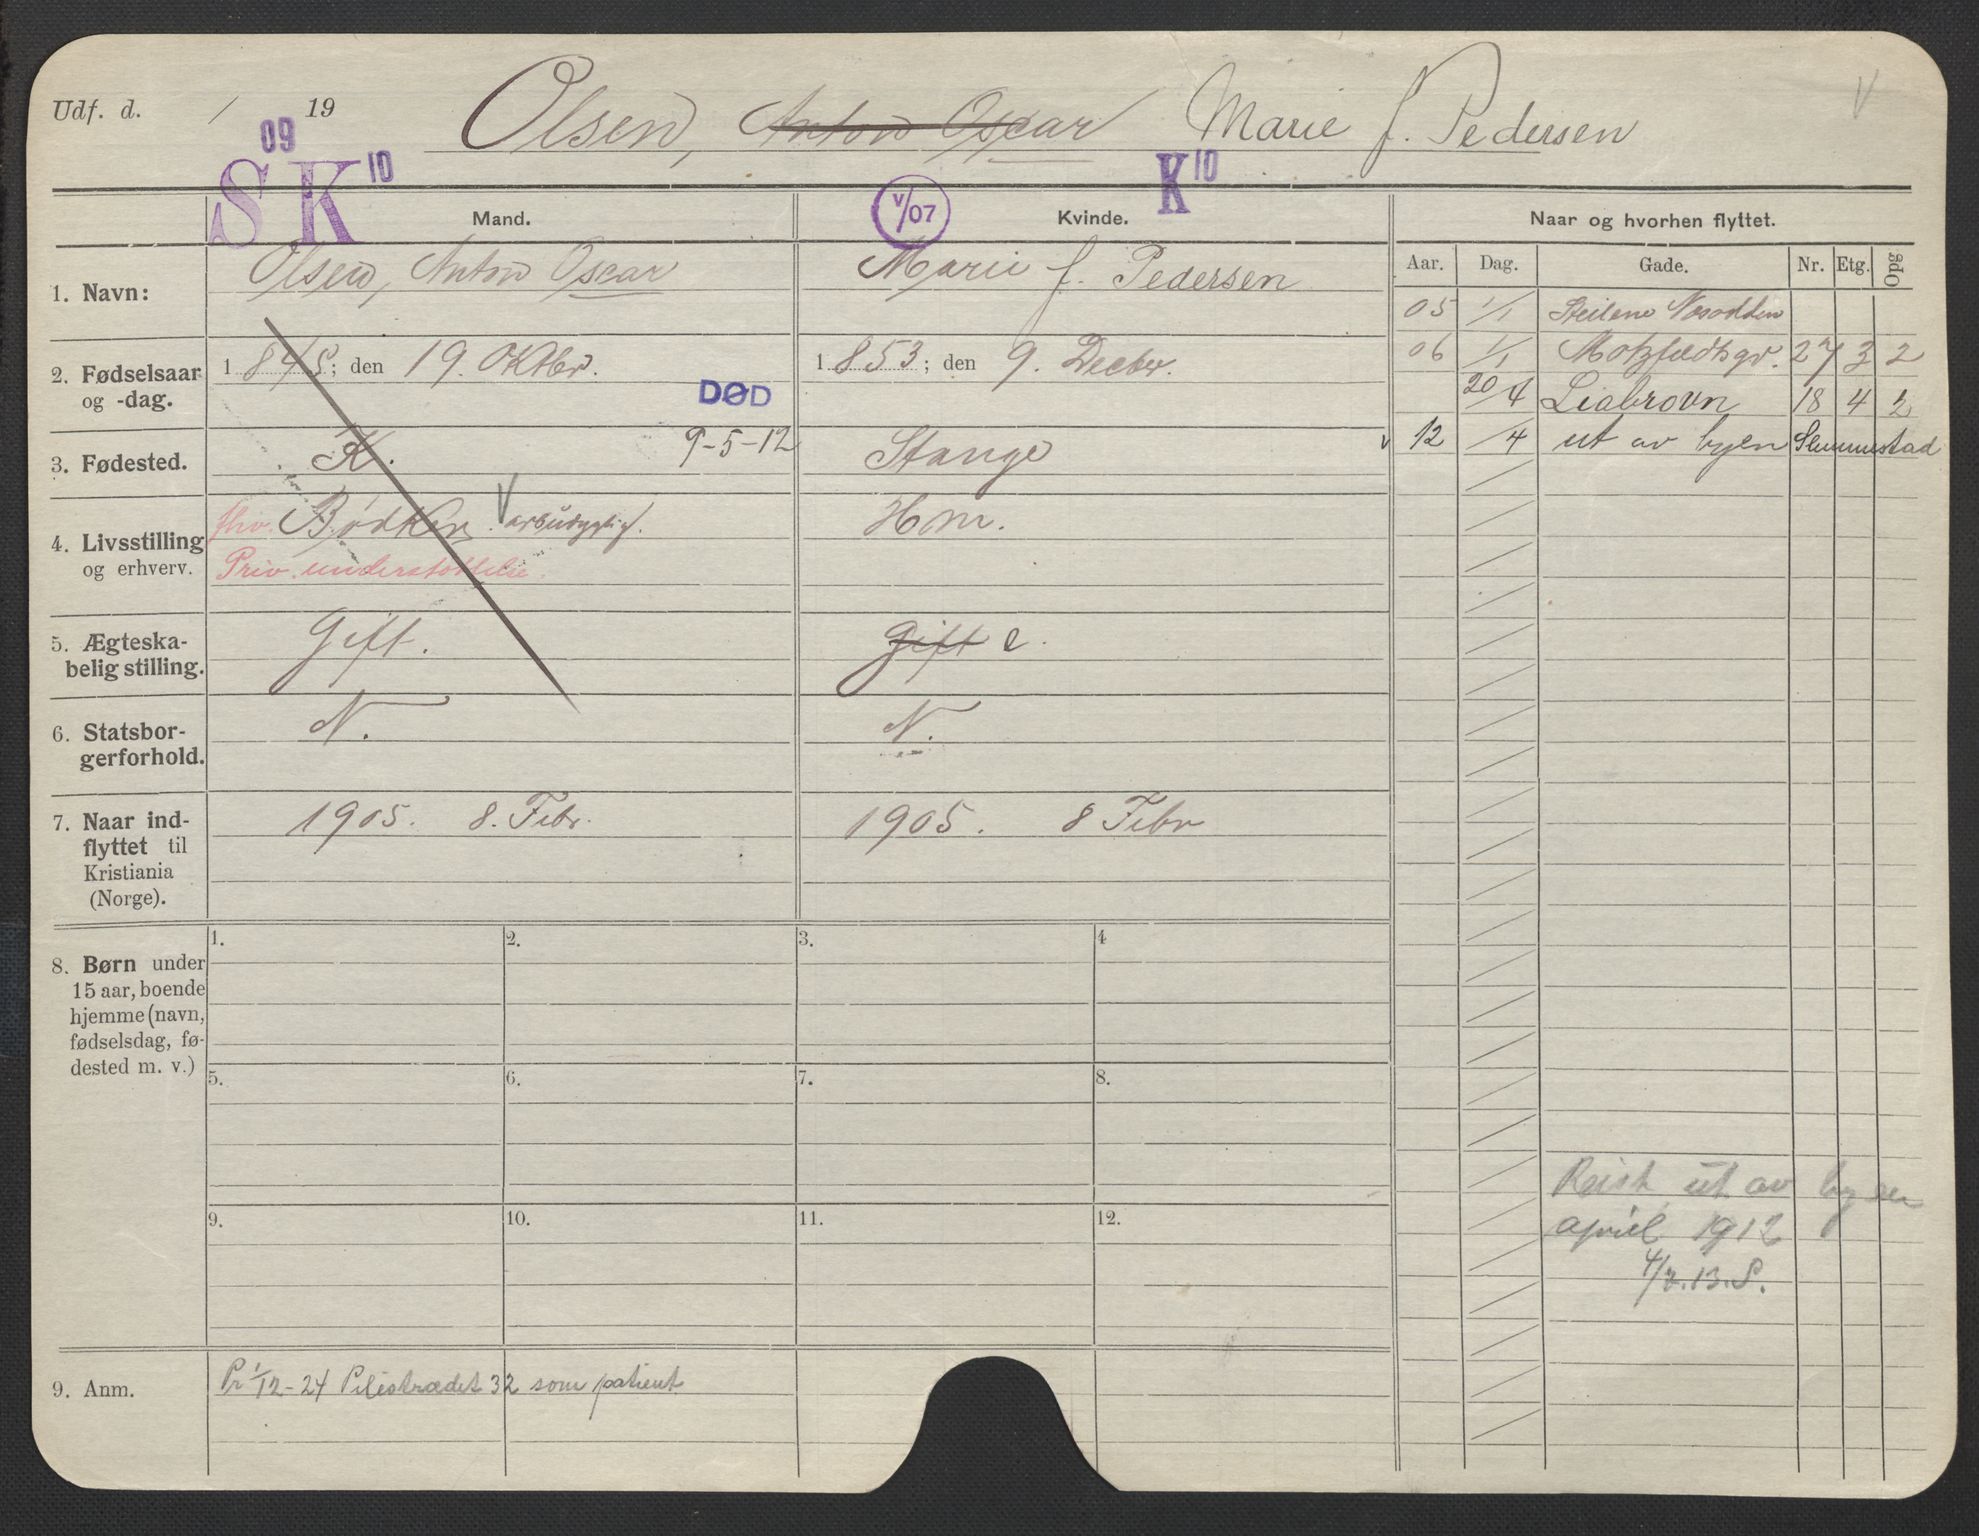 Udf. d. / 19
Olsen, Anton Oscar Marie f. Pedersen
V
09
S K 10
V/07
K 10
Mand.
Kvinde.
Naar og hvorhen flyttet.
Aar. Dag. Gade. Nr. Etg. Opg
1. Navn:
Olsen, Anton Oscar
Marie f. Pedersen
05 1/1 Steilene Nesodden
06 1/1 Motzfeldtsgt. 27 3 2
20/4 Liabrovn 18 4 2
v 12 /4 ut av byen Slemmestad
2. Fødselsaar
og -dag.
1845; den 19. Oktbr.
1853; den 9. Decbr.
DØD
9-5-12
3. Fødested.
K.
Stange
4. Livsstilling
og erhverv.
fhv. Bødker. V arbudyglig.
Priv. understøttelse.
Hm.
5. Ægteska-
belig stilling.
Gift.
Gift e.
6. Statsbor-
gerforhold.
N.
N.
7. Naar ind-
flyttet til
Kristiania
(Norge).
1905. 8. Febr.
1905. 8 Febr
8. Børn under
15 aar, boende
hjemme (navn,
fødselsdag, fø-
dested m. v.)
1. 2. 3. 4
5. 6. 7. 8.
9. 10. 11. 12.
Reist ut av byen
april 1912
4/2.13.S.
9. Anm.
Pr 1/12-24 Pilestrædet 32 som patient